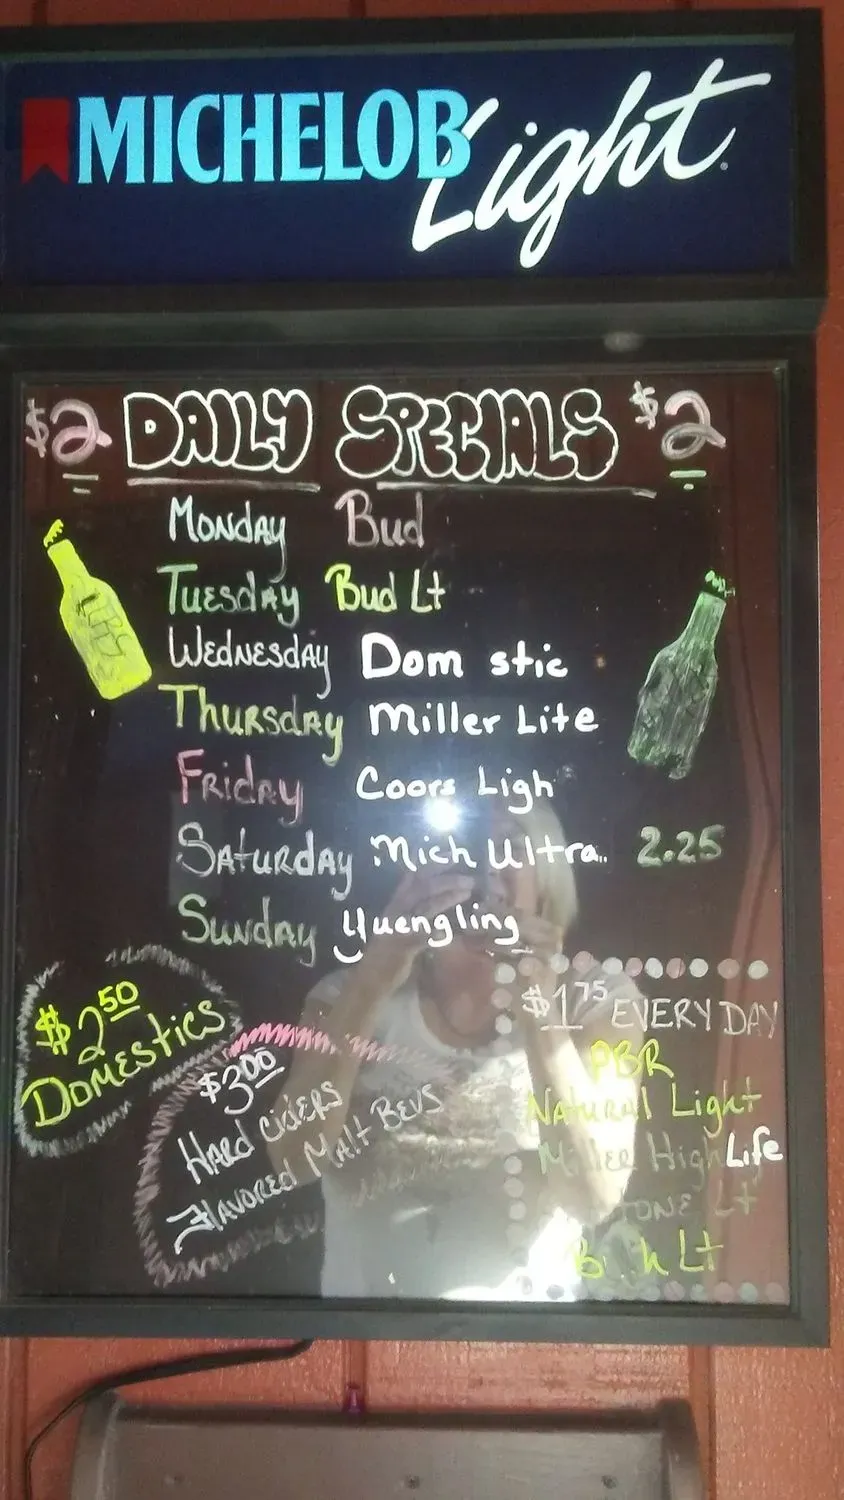 MICHELOB Light
$2 DAILY SPECIALS $2
MONDAY Bud
TUESDAY Bud Lt
WEDNESDAY Dom stic
THURSDAY Miller Lite
FRIDAY Coors Ligh
SATURDAY Mich Ultra.. 2.25
SUNDAY Yuengling
$2.50
DOMESTICS
$3.00
HARD CIDERS
FLAVORED MALT BEVS
$1.75 EVERY DAY
PBR
NATURAL LIGHT
MILLER HIGH LIFE
TONE LT
B h LT